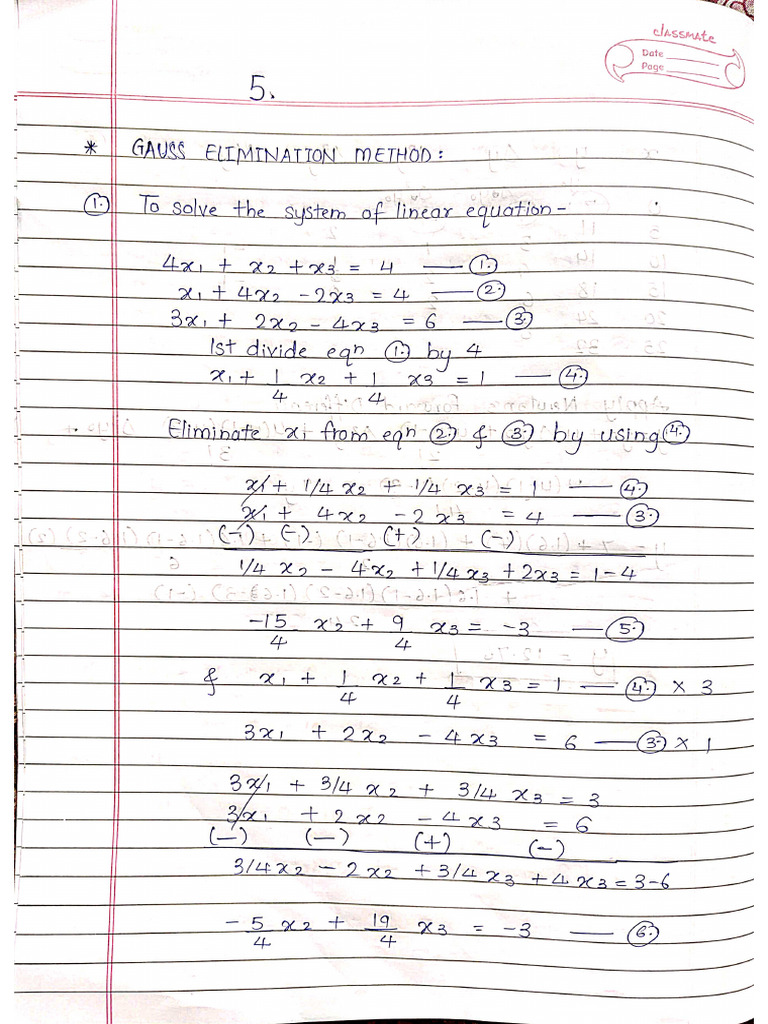 classmate
Date
Page
5.
* GAUSS ELIMINATION METHOD:
① To solve the system of linear equation-
4x₁ + x₂ + x₃ = 4 — ①
x₁ + 4x₂ - 2x₃ = 4 — ②
3x₁ + 2x₂ - 4x₃ = 6 — ③
1st divide eqn ① by 4
x₁ + 1/4 x₂ + 1/4 x₃ = 1 — ④
Eliminate x₁ from eqn ② & ③ by using ④
x₁ + 1/4 x₂ + 1/4 x₃ = 1 — ④
x₁ + 4x₂ - 2x₃ = 4 — ③
(-) (-) (+) (-)
1/4 x₂ - 4x₂ + 1/4 x₃ + 2x₃ = 1-4
-15/4 x₂ + 9/4 x₃ = -3 — ⑤
& x₁ + 1/4 x₂ + 1/4 x₃ = 1 — ④ × 3
3x₁ + 2x₂ - 4x₃ = 6 — ③ × 1
3x₁ + 3/4 x₂ + 3/4 x₃ = 3
3x₁ + 2x₂ - 4x₃ = 6
(-) (-) (+) (-)
3/4 x₂ - 2x₂ + 3/4 x₃ + 4x₃ = 3-6
-5/4 x₂ + 19/4 x₃ = -3 — ⑥